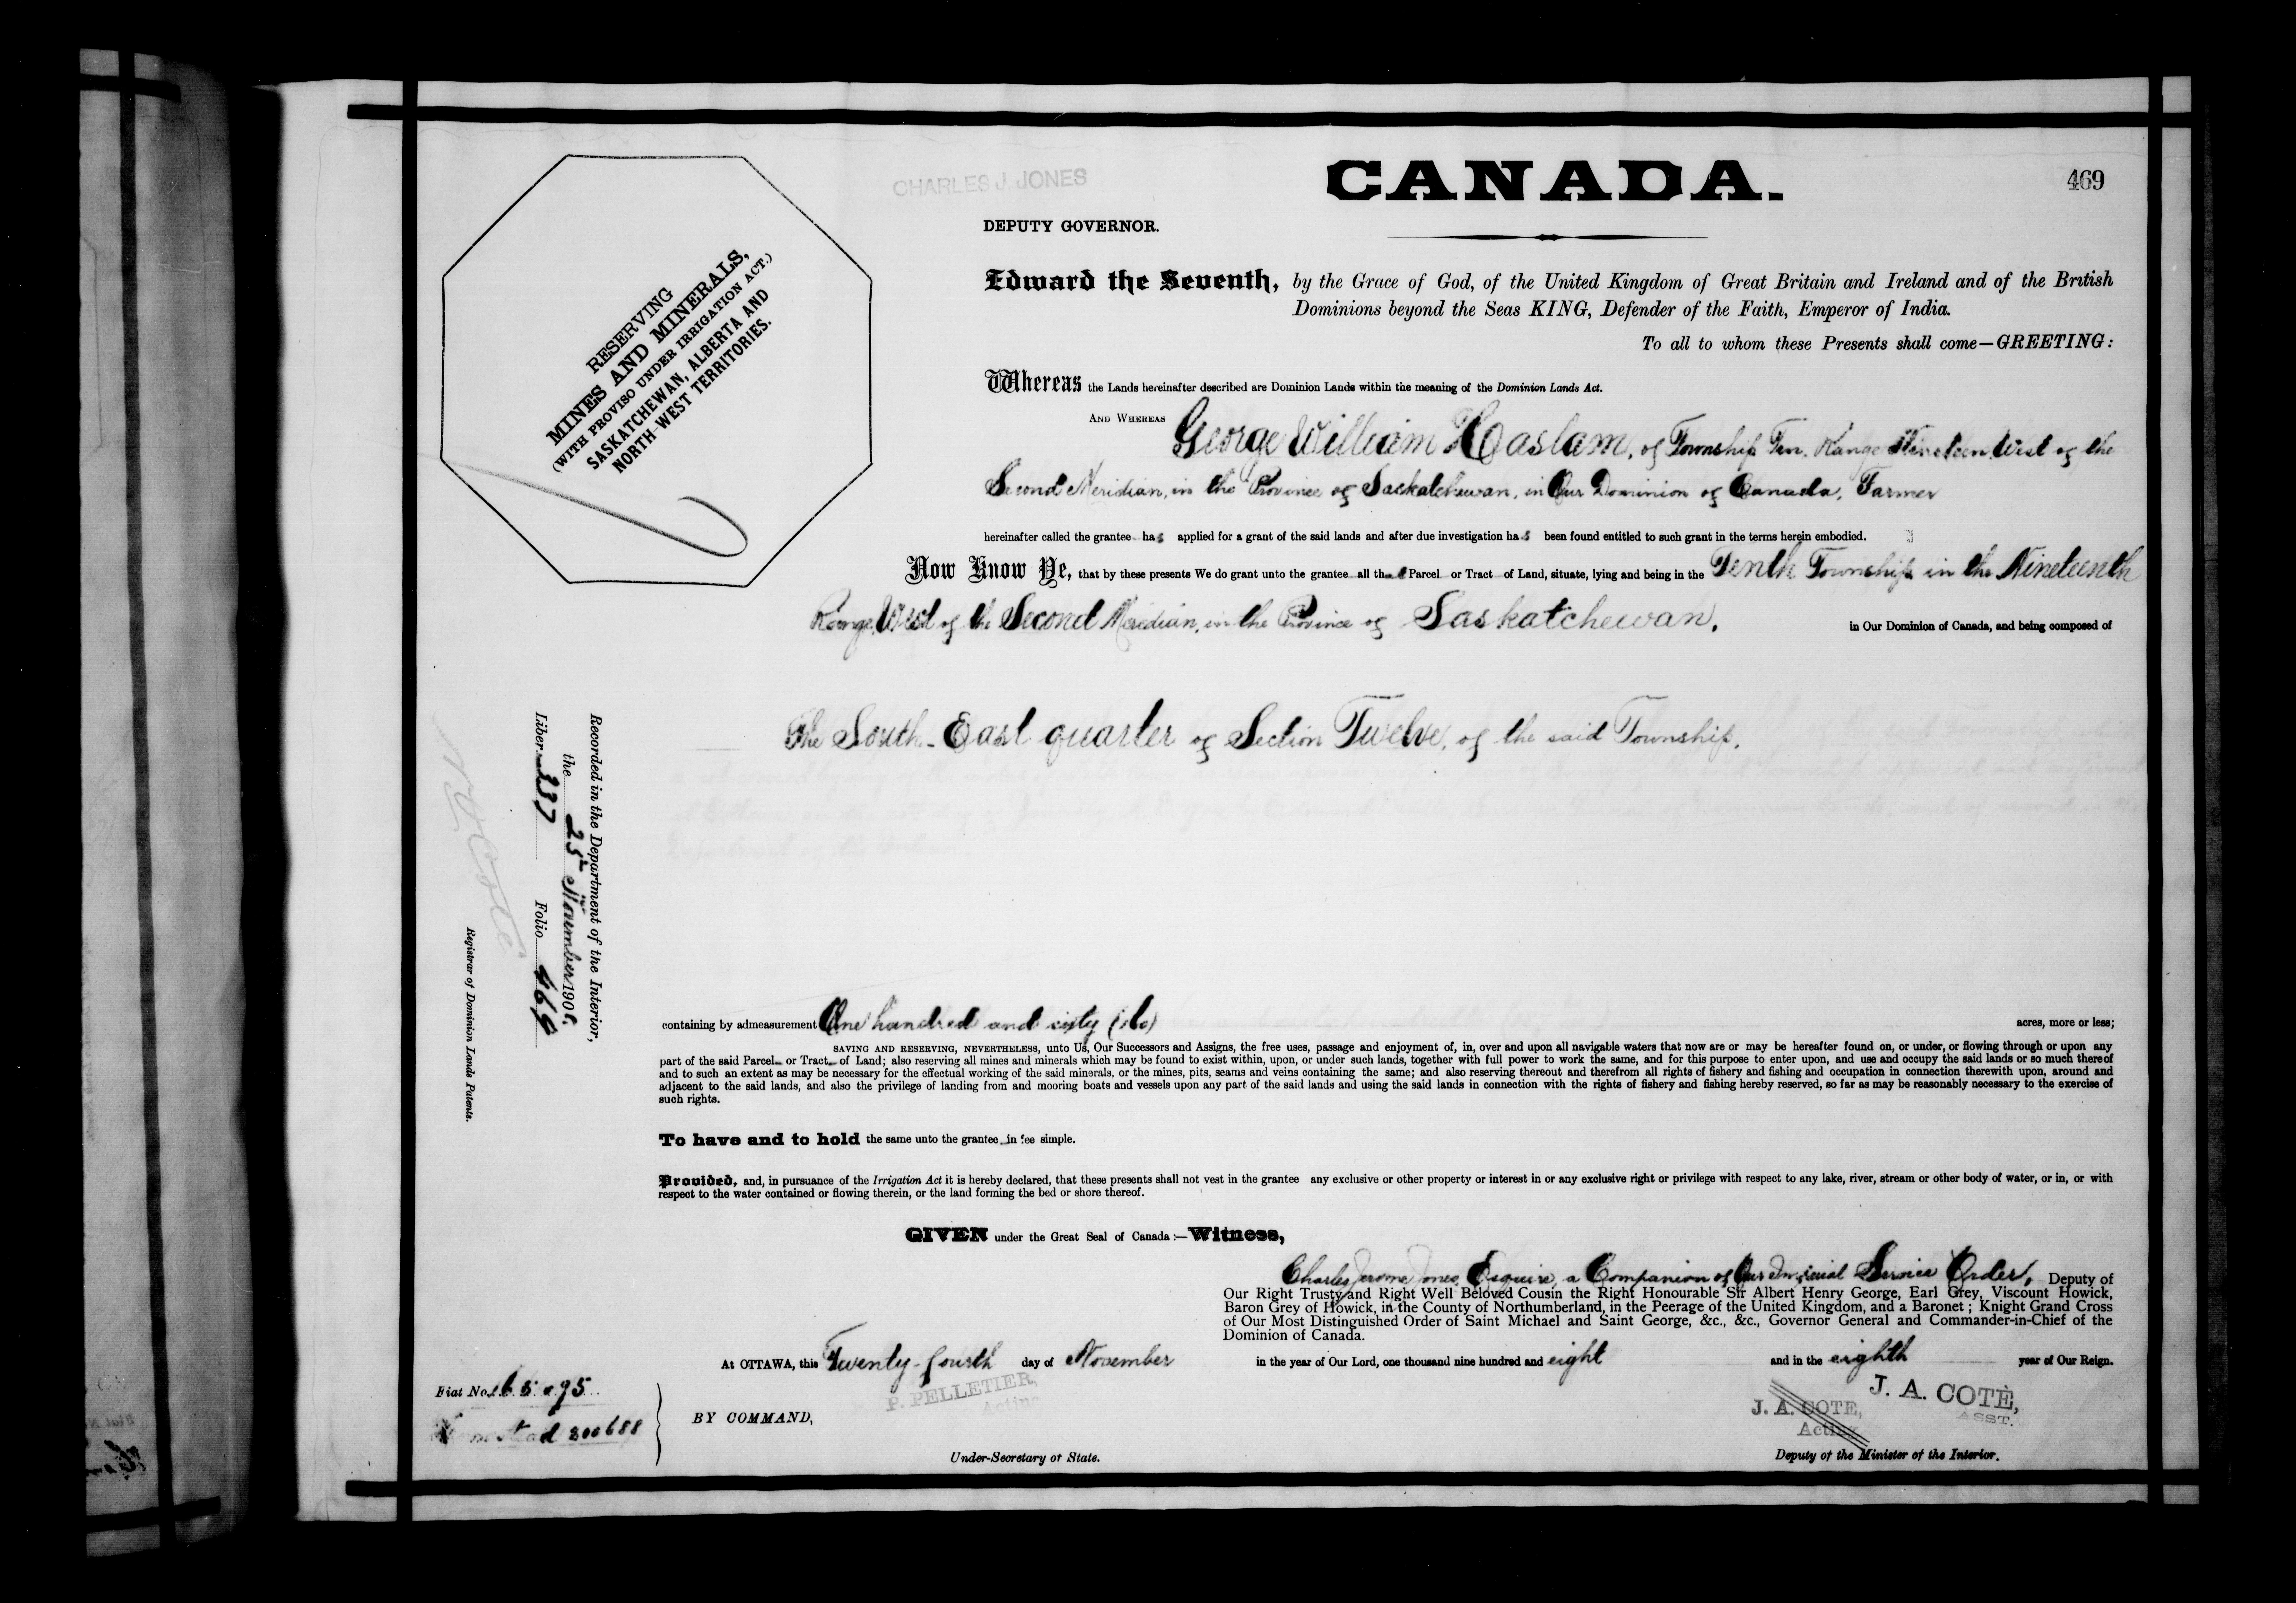 469
CHARLES J. JONES
CANADA.
DEPUTY GOVERNOR.
RESERVING
MINES AND MINERALS,
(WITH PROVISO UNDER IRRIGATION ACT.)
SASKATCHEWAN, ALBERTA AND
NORTH-WEST TERRITORIES.
Edward the Seventh, by the Grace of God, of the United Kingdom of Great Britain and Ireland and of the British
Dominions beyond the Seas KING, Defender of the Faith, Emperor of India.
To all to whom these Presents shall come—GREETING:
Whereas the Lands hereinafter described are Dominion Lands within the meaning of the Dominion Lands Act.
AND WHEREAS George William Haslam, of Township Ten, Range Nineteen, West of the
Second Meridian, in the Province of Saskatchewan, in Our Dominion of Canada, Farmer
hereinafter called the grantee has applied for a grant of the said lands and after due investigation has been found entitled to such grant in the terms herein embodied.
Now Know Ye, that by these presents We do grant unto the grantee all that Parcel or Tract of Land, situate, lying and being in the Tenth Township in the Nineteenth
Range, West of the Second Meridian, in the Province of Saskatchewan, in Our Dominion of Canada, and being composed of
The South-East quarter of Section Twelve, of the said Township.
Recorded in the Department of the Interior,
the 25th November 1908.
Liber 237 Folio 469
N O Coté
Registrar of Dominion Lands Patents.
containing by admeasurement One hundred and sixty (160) acres, more or less;
SAVING AND RESERVING, NEVERTHELESS, unto Us, Our Successors and Assigns, the free uses, passage and enjoyment of, in, over and upon all navigable waters that now are or may be hereafter found on, or under, or flowing through or upon any
part of the said Parcel or Tract of Land; also reserving all mines and minerals which may be found to exist within, upon, or under such lands, together with full power to work the same, and for this purpose to enter upon, and use and occupy the said lands or so much thereof
and to such an extent as may be necessary for the effectual working of the said minerals, or the mines, pits, seams and veins containing the same; and also reserving thereout and therefrom all rights of fishery and fishing and occupation in connection therewith upon, around and
adjacent to the said lands, and also the privilege of landing from and mooring boats and vessels upon any part of the said lands and using the said lands in connection with the rights of fishery and fishing hereby reserved, so far as may be reasonably necessary to the exercise of
such rights.
To have and to hold the same unto the grantee in fee simple.
Provided, and, in pursuance of the Irrigation Act it is hereby declared, that these presents shall not vest in the grantee any exclusive or other property or interest in or any exclusive right or privilege with respect to any lake, river, stream or other body of water, or in, or with
respect to the water contained or flowing therein, or the land forming the bed or shore thereof.
GIVEN under the Great Seal of Canada:—Witness,
Charles Jerome Jones, Esquire, a Companion of Our Imperial Service Order, Deputy of
Our Right Trusty and Right Well Beloved Cousin the Right Honourable Sir Albert Henry George, Earl Grey, Viscount Howick,
Baron Grey of Howick, in the County of Northumberland, in the Peerage of the United Kingdom, and a Baronet; Knight Grand Cross
of Our Most Distinguished Order of Saint Michael and Saint George, &c., &c., Governor General and Commander-in-Chief of the
Dominion of Canada.
At OTTAWA, this Twenty-fourth day of November in the year of Our Lord, one thousand nine hundred and eight and in the eighth year of Our Reign.
Fiat No.
Homestead 200688
BY COMMAND,
P. PELLETIER,
Acting
Under-Secretary of State.
J. A. COTE,
Acting
J. A. COTÈ,
ASST.
Deputy of the Minister of the Interior.